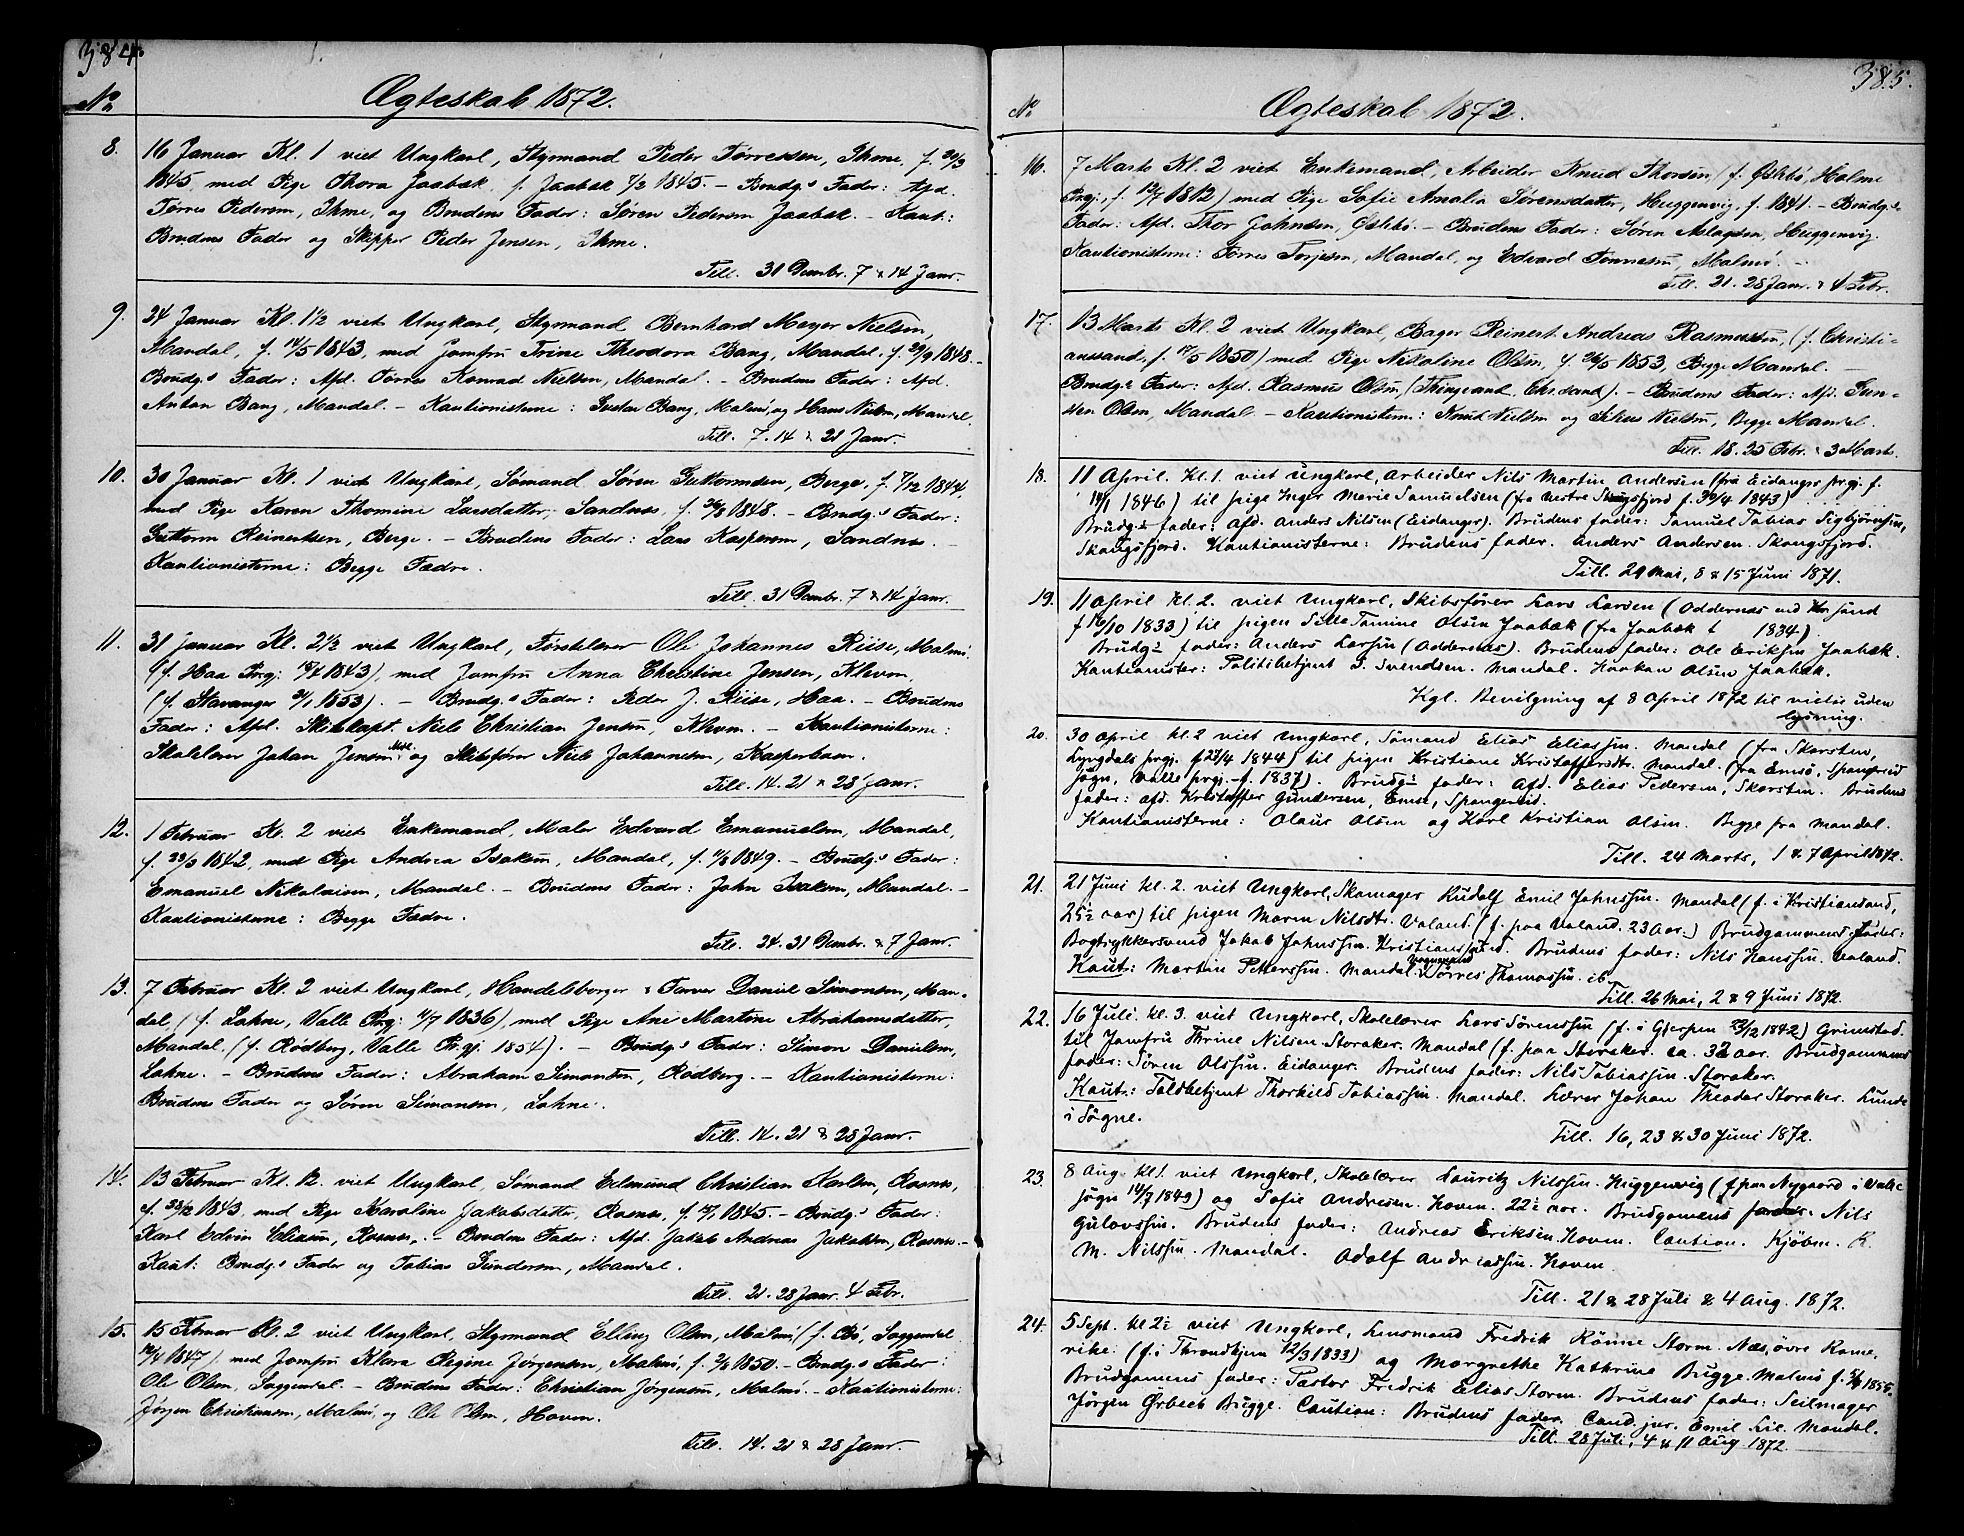 384.
No
Ægteskab 1872.
8. 16 Januar Kl. 1 viet Ungkarl, Styrmand Peder Tørressen, Ihme, f. 20/3
1845, med Pige Thora Jaabæk, f. Jaabæk 7/2 1845. – Brudg.s Fader: Afd.
Tørres Pedersen, Ihme, og Brudens Fader: Søren Pedersen Jaabæk. – Kaut:
Brudens Fader og Skipper Peder Jensen, Ihme.
Till. 31 Dembr. 7 & 14 Janr.
9. 24 Januar Kl. 1½ viet Ungkarl, Styrmand Bernhard Meyer Nielsen,
Mandal, f. 14/5 1843, med Jomfru Trine Theodora Bang, Mandal, f. 29/9 1848. –
Brudg.s Fader: Afd. Tørres Konrad Nielsen, Mandal. – Brudens Fader: Afd.
Anton Bang, Mandal. – Kautionisterne: Gustav Bang, Malmö, og Hans Nielsen, Mandal.
Till. 7. 14 & 21 Janr.
10. 30 Januar Kl. 1 viet Ungkarl, Sömand Søren Guttormsen, Berge, f. 7/12 1844,
med Pige Karen Thomine Larsdatter, Sandnæs, f. 26/8 1848. – Brudg.s Fader:
Guttorm Reinertsen, Berge. – Brudens Fader: Lars Kaspersen, Sandnæs. –
Kautionisterne: Begge Fædre.
Till. 31 Dembr. 7 & 14 Janr.
11. 31 Januar Kl. 2½ viet Ungkarl, Førstelærer Ole Johannes Riise, Malmö
(f. Haa Prgj: 18/4 1843), med Jomfru Anna Christine Jensen, Kleven,
(f. Stavanger 31/1 1853). – Brudg.s Fader: Peder J. Riise, Haa. – Brudens
Fader: Afd. Skibskapt. Niels Christian Jensen, Kleven. – Kautionisterne:
Skolelærer Johan Jensen, Mdl. og Skibsfører Niels Johannesen, Kasperbaen.
Till. 14. 21 & 28 Janr.
12. 1 Februar Kl. 2 viet Enkemand, Maler Edvard Emanuelsen, Mandal,
f. 23/3 1842, med Pige Andrea Isaksen, Mandal, f. 11/8 1849. – Brudg.s Fader:
Emanuel Nikolaisen, Mandal. – Brudens Fader: John Isaksen, Mandal. –
Kautionisterne: Begge Fædre.
Till. 24. 31 Dembr. & 7 Janr.
13. 7 Februar Kl. 2 viet Ungkarl, Handelsborger & Farver Daniel Simonsen, Man-
dal, (f. Lohne, Valle Prgj: 11/7 1836), med Pige Ane Martine Abrahamsdatter,
Mandal, (f. Rödberg, Valle Prgj 1854). – Brudg.s Fader: Simon Danielsen,
Lohne. – Brudens Fader: Abraham Simonsen, Rödberg. – Kautionisterne:
Brudens Fader og Søren Simonsen, Lohne.
Till. 14. 21 & 28 Janr.
14. 13 Februar Kl. 12. viet Ungkarl, Sömand Edmund Christian Karlsen, Rosnæs,
f. 23/2 1843, med Pige Karoline Jakobsdatter, Rosnæs, f. 1845. – Brudg.s Fader:
Karl Edvin Eliasen, Rosnæs. – Brudens Fader: Afd. Jakob Andreas Jakobsen, Rosnæs. –
Kaut: Brudg.s Fader og Tobias Gundersen, Mandal.
Till. 21. 28 Janr. 4 Febr.
15. 15 Februar Kl. 2 viet Ungkarl, Styrmand Elling Olsen, Malmö, (f. Bö, Soggendal
1847), med Jomfru Klara Regine Jørgensen, Malmö, f. 1850. – Brudg.s Fader:
Ole Olsen, Soggendal. – Brudens Fader: Christian Jørgensen, Malmö. – Kautionisterne:
Jørgen Christiansen, Malmö, og Ole Olsen, Hoven.
Till. 14. 21 & 28 Janr.
385.
No
Ægteskab 1872.
16. 7 Marts Kl. 2 viet Enkemand, Arbeider Knud Thorsen (f. Östebö, Holme
Prgj., f. 12/7 1812) med Pige Sofie Amalia Sørensdatter, Huggenvig, f. 1841. – Brudg.s
Fader: Afd. Thor Johnsen, Östebö. – Brudens Fader: Søren Aslagsen, Huggenvig.
Kautionisterne: Tørres Torjesen, Mandal, og Edvard Tønnesen, Malmö. –
Till. 21. 28 Janr. & 4 Febr.
17. 13 Marts Kl. 2 viet Ungkarl, Bager Reinert Andreas Rasmussen, (f. Christi-
anssand, f. 17/5 1850) med Pige Nikoline Olsen, f. 26/5 1853, Begge Mandal. –
Brudg.s Fader: Afd. Rasmus Olsen, (Thingsand, Chr.sand). – Brudens Fader: Afd. Gun-
sen Olsen, Mandal. – Kautionisterne: Knud Nielsen og Nielsen, Begge Mandal.
Till. 18. 25 Febr. & 3 Mart.
18. 11 April. kl. 1. viet ungkarl, arbeider Nils Martin Andersen (fra Eidanger prgj. f.
14/1 1846) til pige Inger Marie Samuelsen (fra vestre Skogsfjord f. 30/4 1843)
Brudg.s fader: afd. Anders Nilsen (Eidanger). Brudens fader: Samuel Tobias Sigbjørnsen,
Skougsfjord. Kautionisterne: Brudens fader. Anders Andersen. Skougsfjord.
Till. 29 Mai, 8 & 15 Juni 1871.
19. 11 April kl. 2. viet ungkarl, Skibsfører Lars Larsen (Oddernæs ved Kr.sand
f 16/10 1833) til pigen Sille Tomine Olsen Jaabæk (fra Jaabæk f 1834).
Brudg.s fader: Anders Larsen (Oddernæs). Brudens fader: Ole Eriksen Jaabæk.
Kautionister: Politibetjent S. Svendsen. Mandal. Haakon Olsen Jaabæk.
Kgl. Bevilgning af 8 April 1872 til vielse uden
lysning.
20. 30 april kl. 2 viet Ungkarl, Sömand Elias Eliassen. Mandal (fra Skarsten,
Lyngdals prgj. f 23/4 1844) til pigen Kristiane Kristoffersdtr. Mandal. (fra Emsö, Spangereid
sogn, Valle prgj. – f. 1837). Brudg.s fader: Afd. Elias Pedersen, Skarsten. Brudens
fader: afd. Kristoffer Gundersen, Emsö, Spangereid.
Kautionisterne: Olaus Olsen og Karl Kristian Olsen. Begge fra Mandal.
Till. 24 Marts, 1 & 7 April 1872.
21. 21 Juni kl. 2. viet Ungkarl, Skomager Rudolf Emil Johnssen. Mandal (f. i Kristianssand,
25½ aar) til pigen Maren Nilsdtr. Valand. (f. paa Valand. 23 aar.) Brudgommens fader:
Bogtrykkersvend Jakob Johnssen. Kristianssand. Brudens fader: Nils Hanssen. Valand.
Kaut: Martin Pettersen. Mandal. Vognmand Tørres Thomassen. ib.
Till. 26 Mai, 2 & 9 Juni 1872.
22. 16 Juli. kl. 3. viet Ungkarl, Skolelærer Lars Sørenssen (f. i Gjerpen 23/2 1842) Grimstad.
til Jomfru Thrine Nilsen-Storaker. Mandal (f. paa Storaker. ca. 32 aar. Brudgommens
fader: Sören Olssen. Eidanger. Brudens fader: Nils Tobiassen. Storaker.
Kaut.: Toldbetjent Thorkild Tobiassen. Mandal. Lærer Johan Theodor Storaker. Lunde
i Søgne.
Till. 16, 23 & 30 Juni 1872.
23. 8 Aug. kl. 1. viet Ungkarl, Skolelærer Lauritz Nilssen. Huggenvig (f. paa Nygaard i Valle
sogn 14/7 1849) og Sofie Andresen. Hoven. 22½ aar. Brudgomens fader: Nils
Gulovssen. Brudens fader: Andreas Eriksen. Hoven. Caution. Kjøbm. K.
M. Nilssen. Mandal. Adolf Andreassen. Hoven.
Till. 21 & 28 Juli & 4 Aug. 1872.
24. 5 Sept. kl 2½ viet Ungkarl, Lensmand Fredrik Rönne Storm. Næs, övre Rome-
rike. (f. i Throndhjem 12/3 1833) og Margrethe Kathrine Bugge. Malmö f. 1855.
Brudgomens fader: Pastor Fredrik Elias Storm. Brudens fader: Seilmager
Jörgen Ørbeck Bugge. Caution: Brudens fader. Cand. jur. Emil Lil. Mandal.
Till. 28 Juli, 4 & 11 Aug 1872.